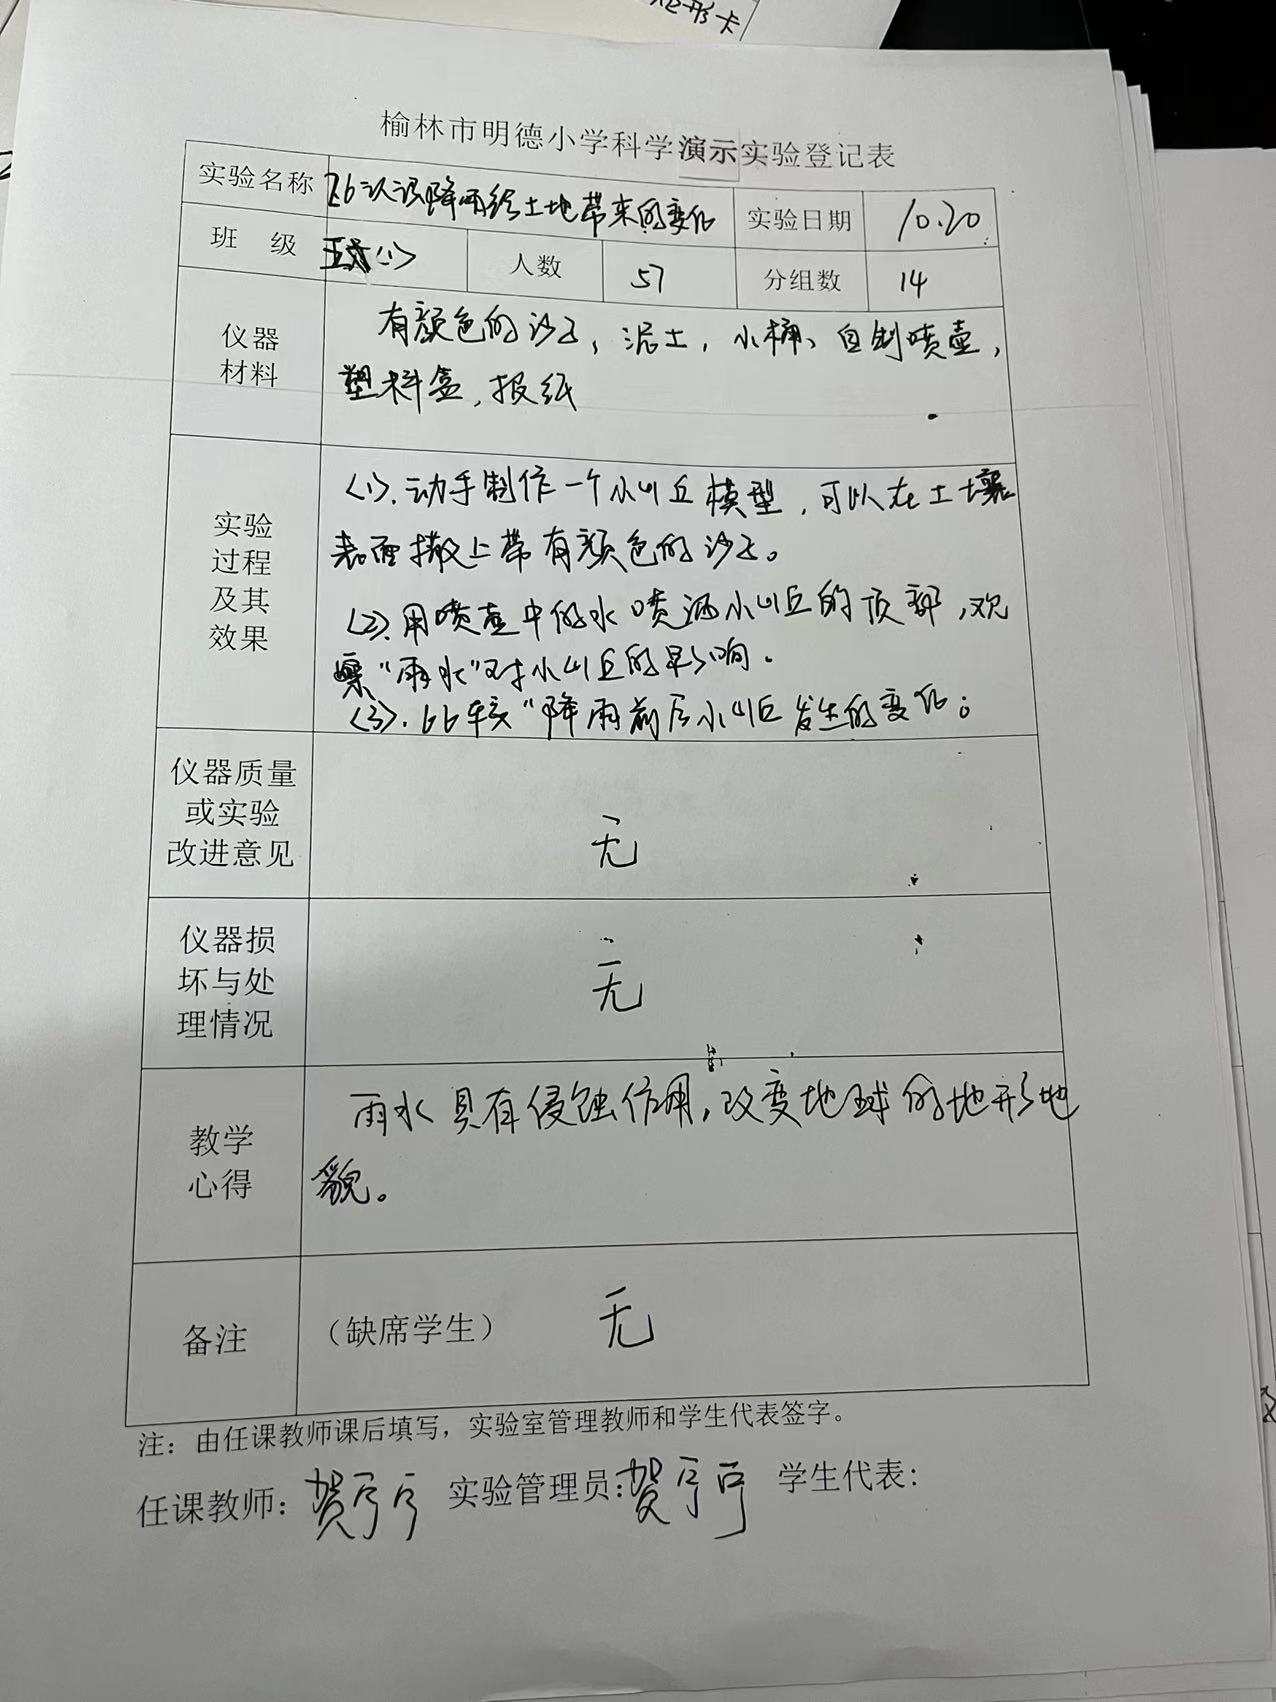 形卡
榆林市明德小学科学演示实验登记表
实验名称 2.6认识降雨给土地带来的变化 实验日期 10.20
班 级 五(1) 人数 57 分组数 14
仪器
材料
有颜色的沙子，泥土，小桶、自制喷壶，
塑料盒，报纸
实验
过程
及其
效果
(1).动手制作一个小山丘模型，可以在土壤
表面撒上带有颜色的沙子。
(2).用喷壶中的水喷洒小山丘的顶部，观
察"雨水"对小山丘的影响。
(3).比较"降雨前后小山丘发生的变化；
仪器质量
或实验
改进意见
无
仪器损
坏与处
理情况
无
教学
心得
雨水具有侵蚀作用，改变地球的地形地
貌。
备注 (缺席学生) 无
注：由任课教师课后填写，实验室管理教师和学生代表签字。
任课教师：贺 实验管理员:贺 学生代表: